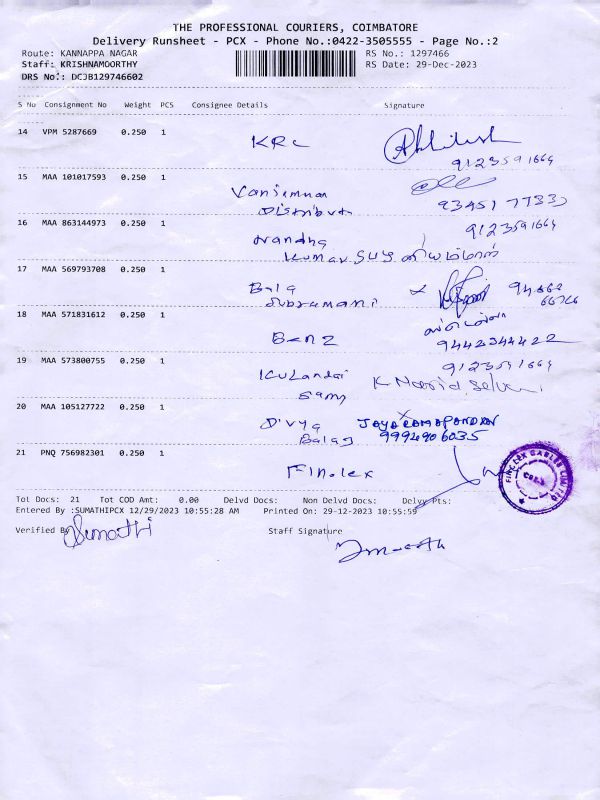 THE PROFESSIONAL COURIERS, COIMBATORE
Delivery Runsheet - PCX - Phone No.:0422-3505555 - Page No.:2
Route: KANNAPPA NAGAR RS No.: 1297466
Staff: KRISHNAMOORTHY RS Date: 29-Dec-2023
DRS No: DCJB129746602
S No Consignment No Weight PCS Consignee Details Signature
14 VPM 5287669 0.250 1
KRC Akhilesh
9123591664
15 MAA 101017593 0.250 1
Distribut 9345177333
16 MAA 863144973 0.250 1
Nandha 9123591664
Kumar
17 MAA 569793708 0.250 1
Bala
Subramani
18 MAA 571831612 0.250 1
Benz 9442344422
19 MAA 573800755 0.250 1
9123591664
Kulandai
Samy
20 MAA 105127722 0.250 1
Divya JAYARAMAPANDIAN
Balag 9994906035
21 PNQ 756982301 0.250 1
Finolex
FINOLEX CABLES LIMITED
Tot Docs: 21 Tot COD Amt: 0.00 Delvd Docs: Non Delvd Docs: Delvy Pts:
Entered By :SUMATHIPCX 12/29/2023 10:55:28 AM Printed On: 29-12-2023 10:55:59
Verified By Sumathi Staff Signature